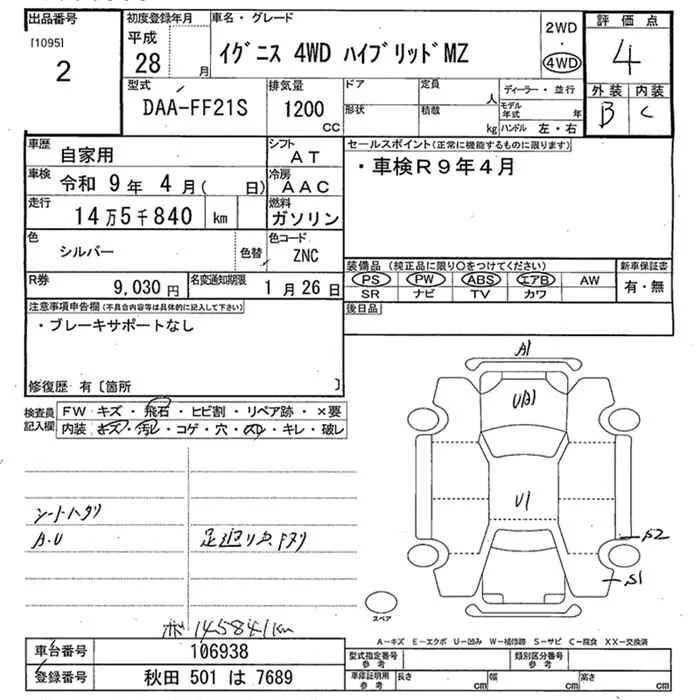 出品番号
[1095]
2
初度登録年月
平成
28 月
車名・グレード
イグニス 4WD ハイブリッドMZ
2WD
・
4WD
評価点
4
外装 内装
B C
型式
DAA-FF21S
排気量
1200
cc
ドア
形状
定員
人
積載
kg
ディーラー・並行
モデル年式 年
ハンドル 左・右
車歴
自家用
シフト
AT
車検
令和 9年 4月( 日)
冷房
AAC
走行
14万5千840 km
燃料
ガソリン
色
シルバー
色替
色コード
ZNC
R券
9,030円
名変通知期限
1月26日
セールスポイント(正常に機能するものに限ります)
・車検R9年4月
装備品(純正品に限り○をつけてください)
PS PW ABS エアB AW
SR ナビ TV カワ
新車保証書
有・無
後日品
注意事項申告欄(不具合内容等は具体的に記入して下さい)
・ブレーキサポートなし
修復歴 有〔箇所 〕
検査員
記入欄
FW キズ・飛石・ヒビ割・リペア跡・×要
内装 キズ・汚レ・コゲ・穴・・キレ・破レ
A・U
A1
UB1
U1
S2
S1
スペア
145841km
A-キズ E-エクボ U-凹み W-補修跡 S-サビ C-腐食 XX-交換済
車台番号
106938
登録番号
秋田 501 は 7689
型式指定番号
参考
類別区分番号
参考
車庫証明用
参考
長さ cm
幅 cm
高さ cm